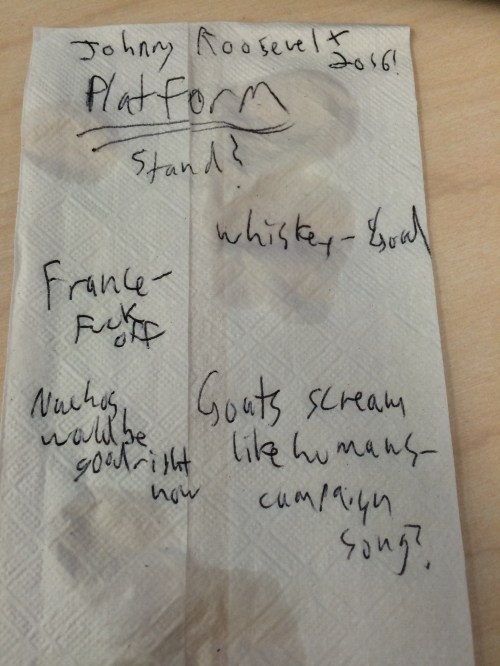 Johnny Roosevelt
2016!
Platform
Stand?
whiskey - Good
France -
Fuck
off
Nachos
would be
good right
now
Goats scream
like humans -
campaign
song?